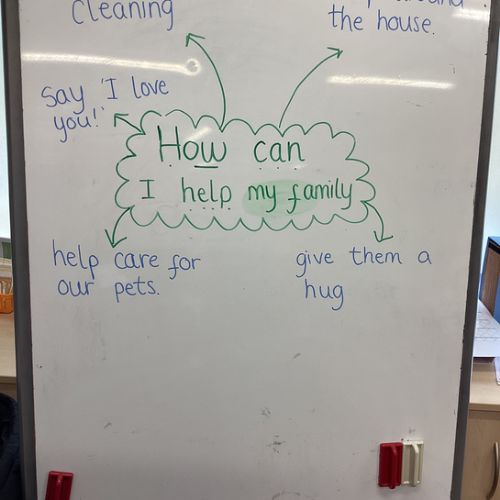 cleaning
around
the house.
say 'I love
you!'
How can
I help my family
help care for
our pets.
give them a
hug